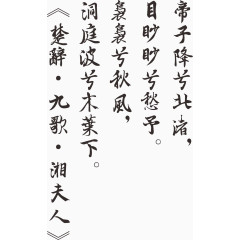 帝子降兮北渚，
目眇眇兮愁予。
裊裊兮秋風，
洞庭波兮木葉下。
《楚辭·九歌·湘夫人》